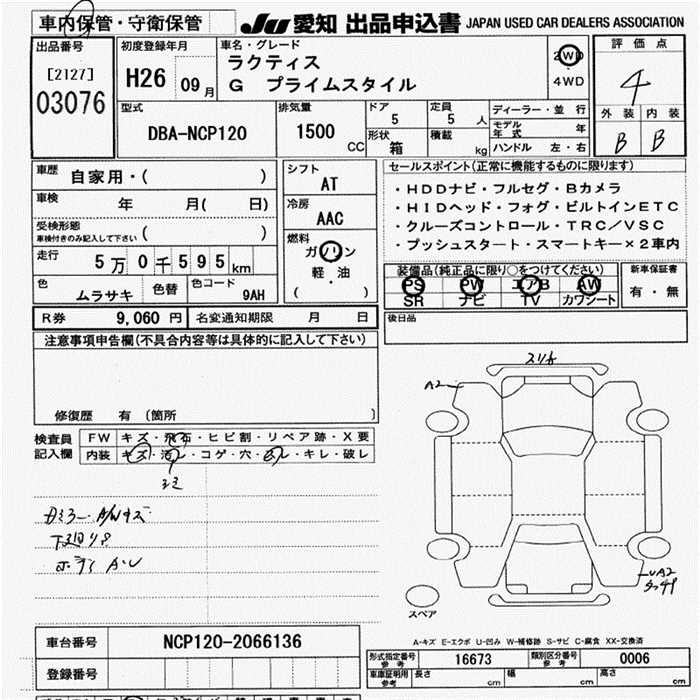 車内保管・守衛保管
JU 愛知 出品申込書 JAPAN USED CAR DEALERS ASSOCIATION
出品番号
[2127]
03076
初度登録年月
H26 09月
車名・グレード
ラクティス
G プライムスタイル
2WD
4WD
評価点
4
外装 内装
B B
型式
DBA-NCP120
排気量
1500 CC
ドア
5
定員
5人
形状
箱
積載
kg
ディーラー・並行
モデル年式 年
ハンドル 左・右
車歴
自家用・( )
車検
年 月( 日)
受検形態
車検付きのみ記入して下さい ( )
走行
5万0千595km
色
ムラサキ
色替
色コード
9AH
シフト
AT
冷房
AAC
燃料
ガソリン
軽・油
( )
セールスポイント(正常に機能するものに限ります)
・HDDナビ・フルセグ・Bカメラ
・HIDヘッド・フォグ・ビルトインETC
・クルーズコントロール・TRC/VSC
・プッシュスタート・スマートキー×2車内
装備品(純正品に限り○をつけてください)
PS PW エアB AW
SR ナビ TV カワシート
新車保証書
有・無
R券 9,060円 名変通知期限 月 日
後日品
注意事項申告欄(不具合内容等は具体的に記入して下さい)
修復歴 有 (箇所 )
検査員
記入欄
FW キズ・飛石・ヒビ割・リペア跡・X要
内装 キズ・汚レ・コゲ・穴・スレ・キレ・破レ
シミ
スリキ
A2
UA2
スペア
A-キズ E-エクボ U-凹み W-補修跡 S-サビ C-腐食 XX-交換済
車台番号 NCP120-2066136
登録番号
形式指定番号 参考 16673 類別区分番号 参考 0006
車庫証明用 参考 長さ cm 幅 cm 高さ cm